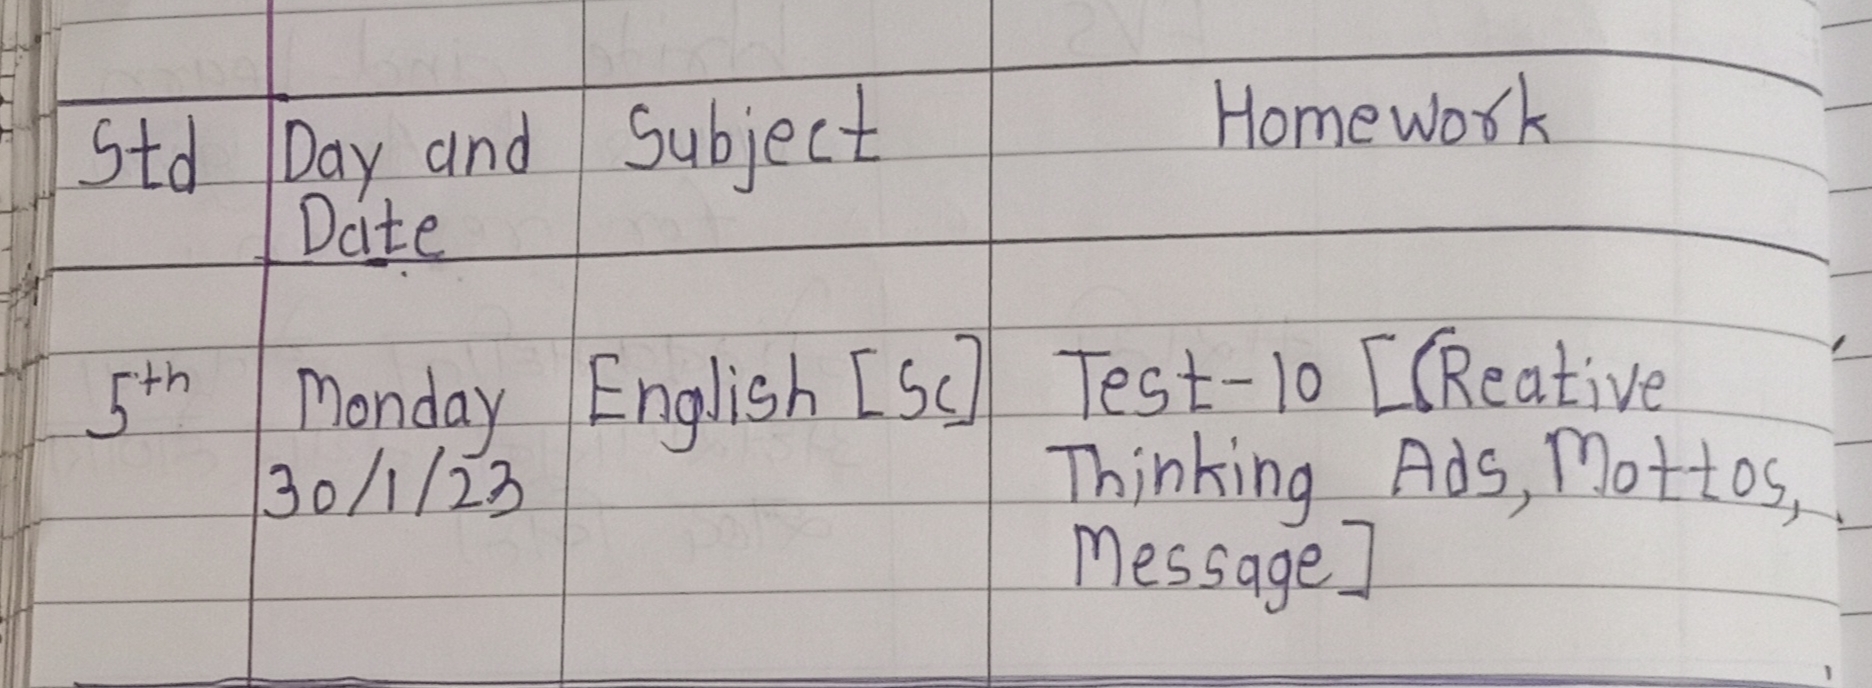 Std Day and Subject Homework
Date
5th Monday English [Sc] Test-10 [CReative
30/1/23 Thinking Ads, Mottos,
Message]